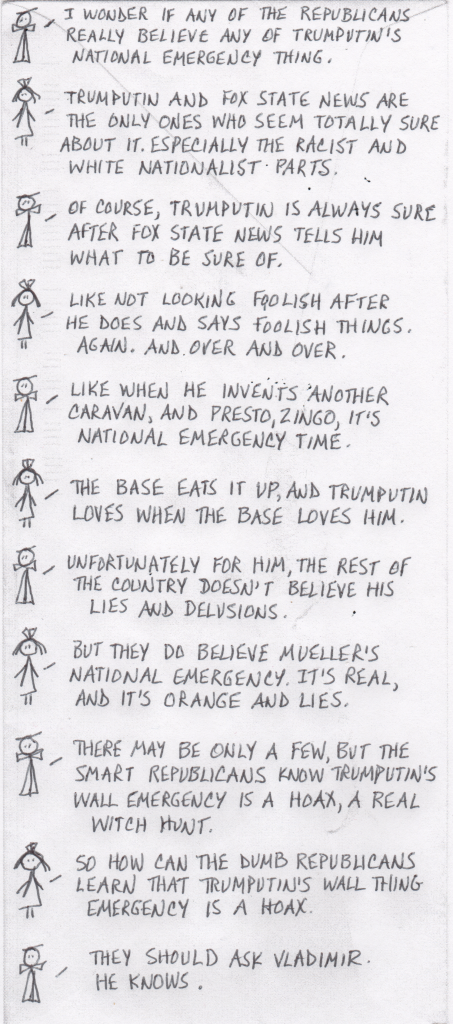 I WONDER IF ANY OF THE REPUBLICANS
REALLY BELIEVE ANY OF TRUMPUTIN'S
NATIONAL EMERGENCY THING.
TRUMPUTIN AND FOX STATE NEWS ARE
THE ONLY ONES WHO SEEM TOTALLY SURE
ABOUT IT. ESPECIALLY THE RACIST AND
WHITE NATIONALIST PARTS.
OF COURSE, TRUMPUTIN IS ALWAYS SURE
AFTER FOX STATE NEWS TELLS HIM
WHAT TO BE SURE OF.
LIKE NOT LOOKING FOOLISH AFTER
HE DOES AND SAYS FOOLISH THINGS.
AGAIN. AND OVER AND OVER.
LIKE WHEN HE INVENTS ANOTHER
CARAVAN, AND PRESTO, ZINGO, IT'S
NATIONAL EMERGENCY TIME.
THE BASE EATS IT UP, AND TRUMPUTIN
LOVES WHEN THE BASE LOVES HIM.
UNFORTUNATELY FOR HIM, THE REST OF
THE COUNTRY DOESN'T BELIEVE HIS
LIES AND DELUSIONS.
BUT THEY DO BELIEVE MUELLER'S
NATIONAL EMERGENCY. IT'S REAL,
AND IT'S ORANGE AND LIES.
THERE MAY BE ONLY A FEW, BUT THE
SMART REPUBLICANS KNOW TRUMPUTIN'S
WALL EMERGENCY IS A HOAX, A REAL
WITCH HUNT.
SO HOW CAN THE DUMB REPUBLICANS
LEARN THAT TRUMPUTIN'S WALL THING
EMERGENCY IS A HOAX.
THEY SHOULD ASK VLADIMIR.
HE KNOWS.